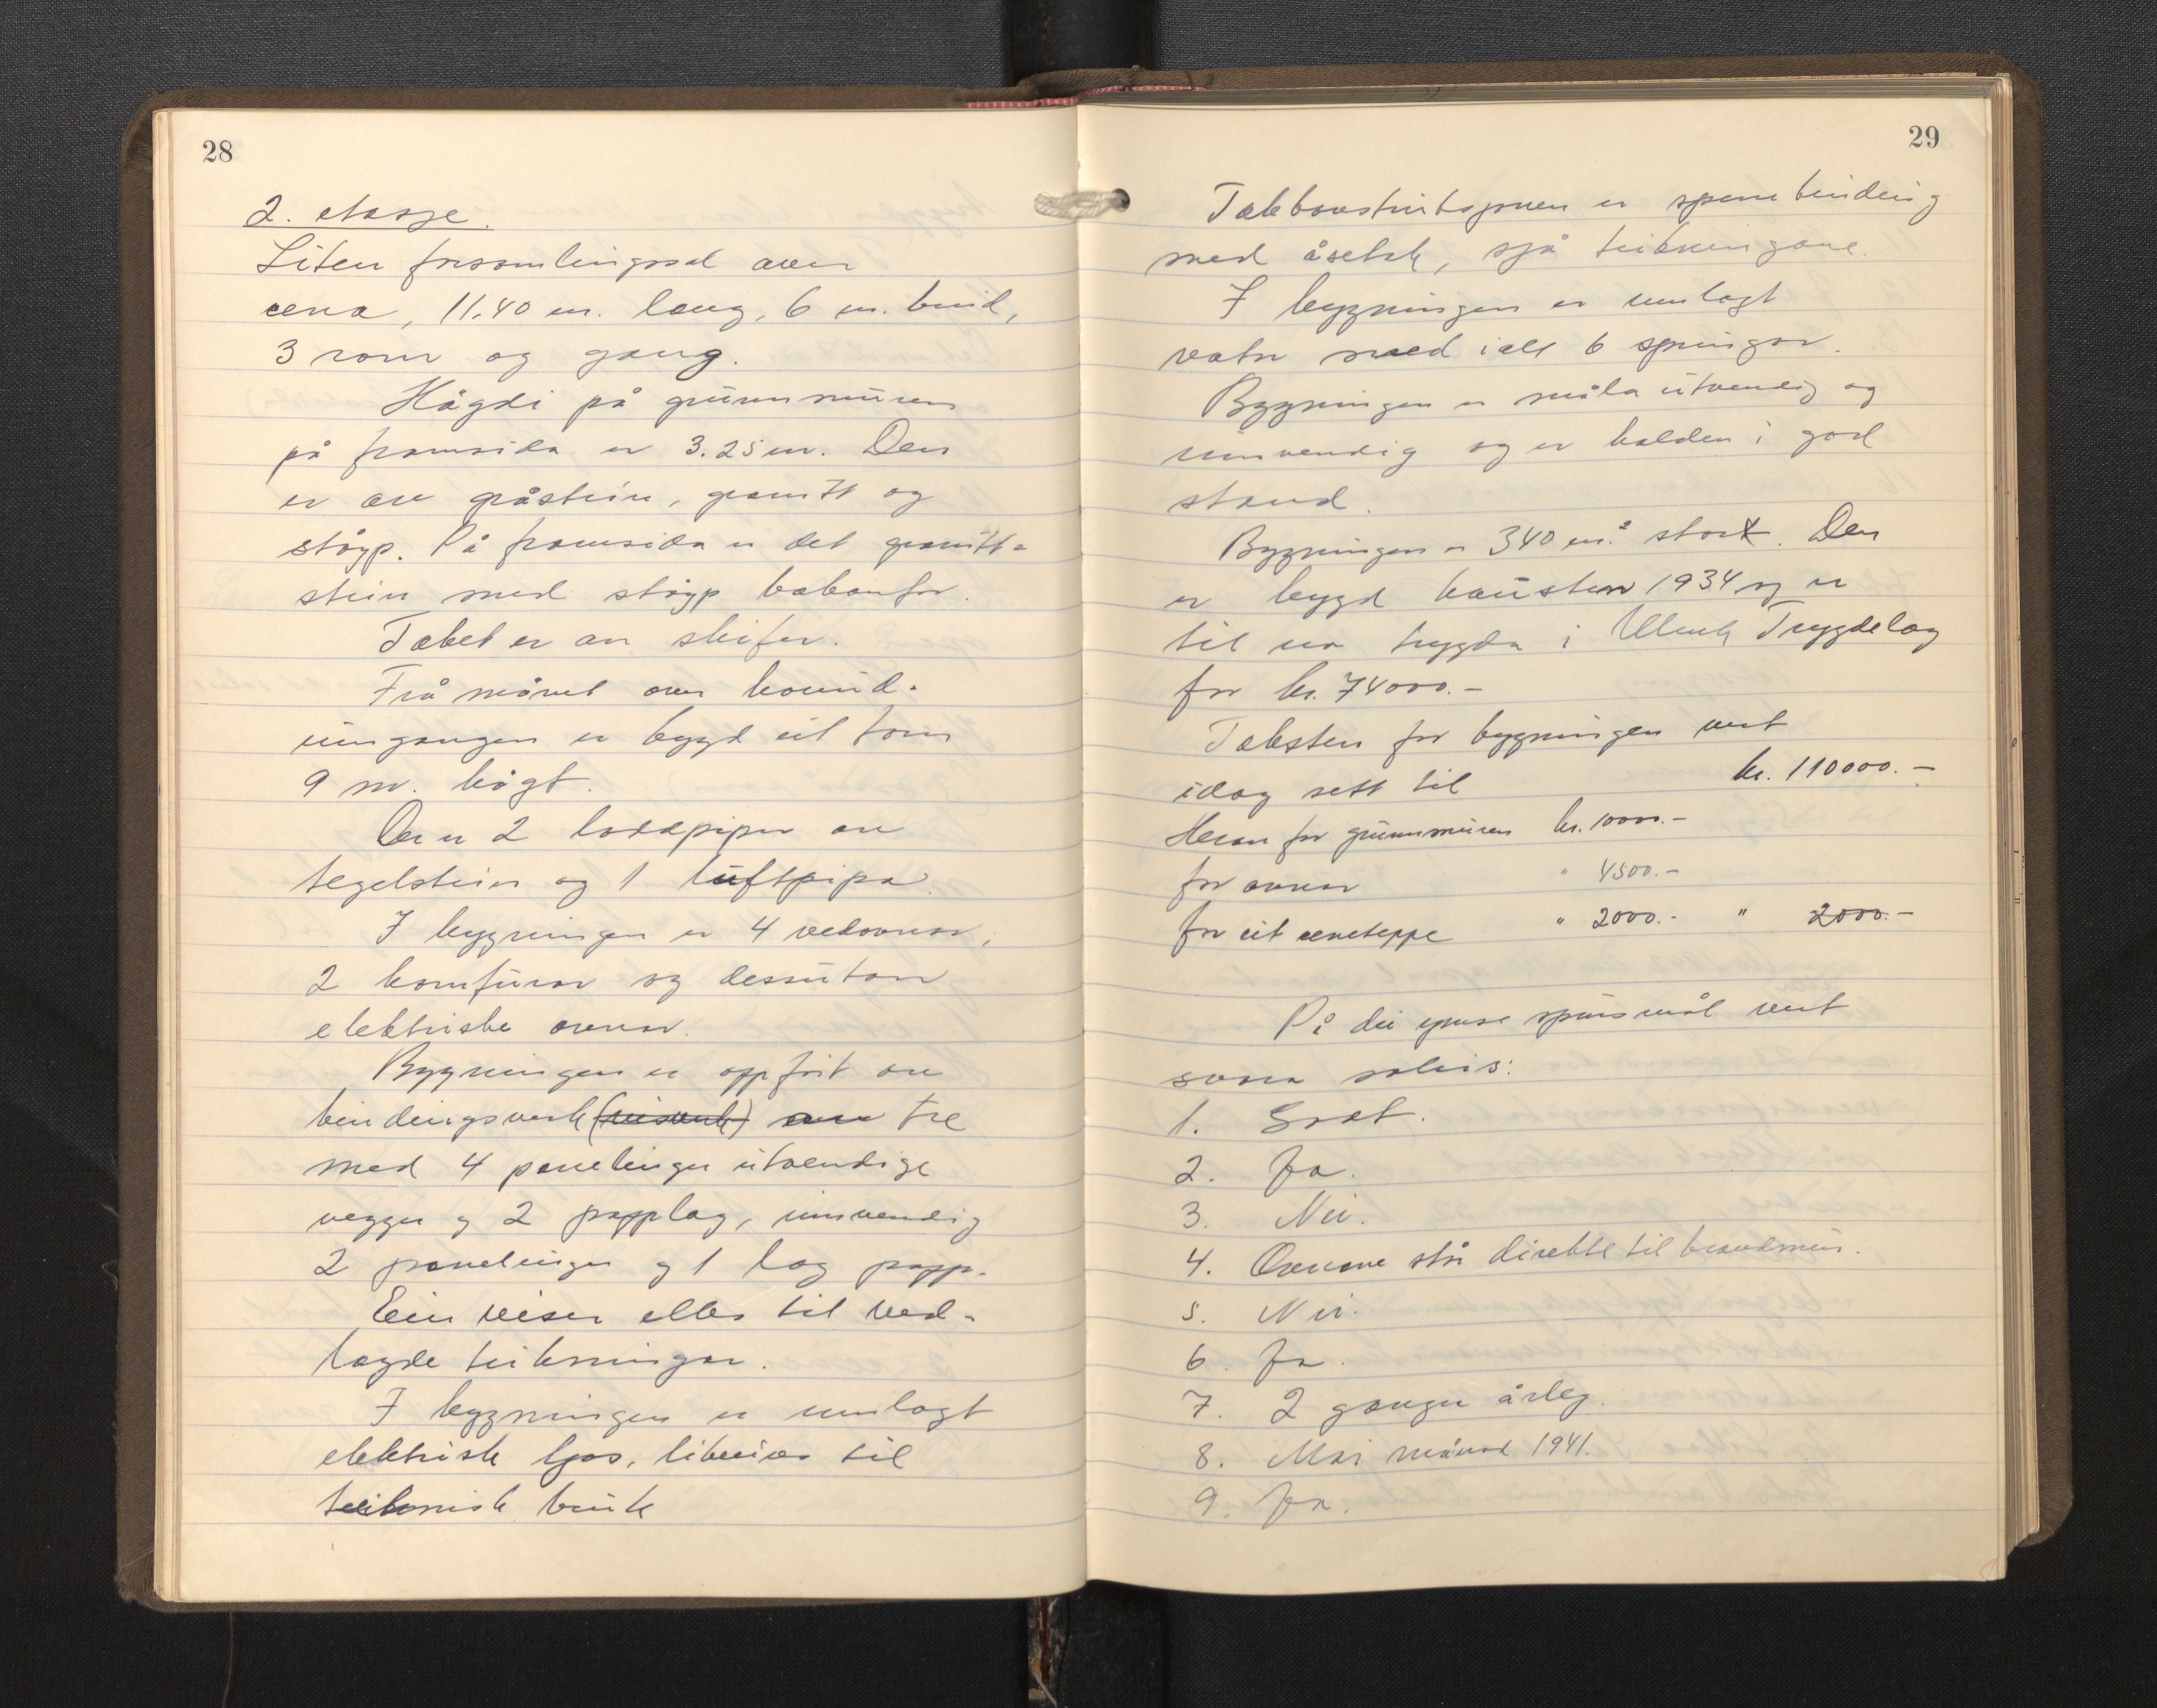 28
2. etasje.
Liten forsamlingssal over
cena, 11.40 m. lang, 6 m. breid,
3 rom og gang.
Högdi på grunnmuren
på framsida er 3.25 m. Den
er av gråstein, granitt og
stöyp. På framsida er det granitt-
stein med stöyp bakanfor.
Taket er av skifer.
Frå mönet over hovud-
inngangen er bygd eit torn
9 m. högt.
Der er 2 loddpiper av
tegelstein og 1 luftpipa.
I bygningen er 4 vedovnar,
2 komfurar og dessutan
elektriske ovnar.
Bygningen er oppfört av
bindingsverk (reisverk) av tre
med 4 panelinger utvendige
vegger og 2 papplag, innvendig
2 panelinger og 1 lag papp.
Ein viser elles til ved-
lagde teikningar.
I bygningen er innlagt
elektrisk ljos, likeeins til
teiknisk bruk
29
Takkonstruksjonen er sperrebinding
med åsetak, sjå teikningane.
I bygningen er innlagt
vatn med i alt 6 springar.
Bygningen er måla utvendig og
innvendig og er halden i god
stand.
Bygningen er 340 m.² stor. Den
er bygd hausten 1934 og er
til no trygda i Ulvik Trygdelag
for kr. 74000.-
Taksten for bygningen vert
idag sett til kr. 110000.-
Herav for grunnmuren kr. 10000.-
for ovnar " 4500.-
for eit seneteppe " 2000.- " 2000.-
På dei ymse spursmål vert
svara soleis:
1. Godt.
2. Ja.
3. Nei.
4. Ovnane står direkte til brandmur.
5. Nei.
6. Ja.
7. 2 ganger årleg.
8. Mai månad 1941.
9. Ja.